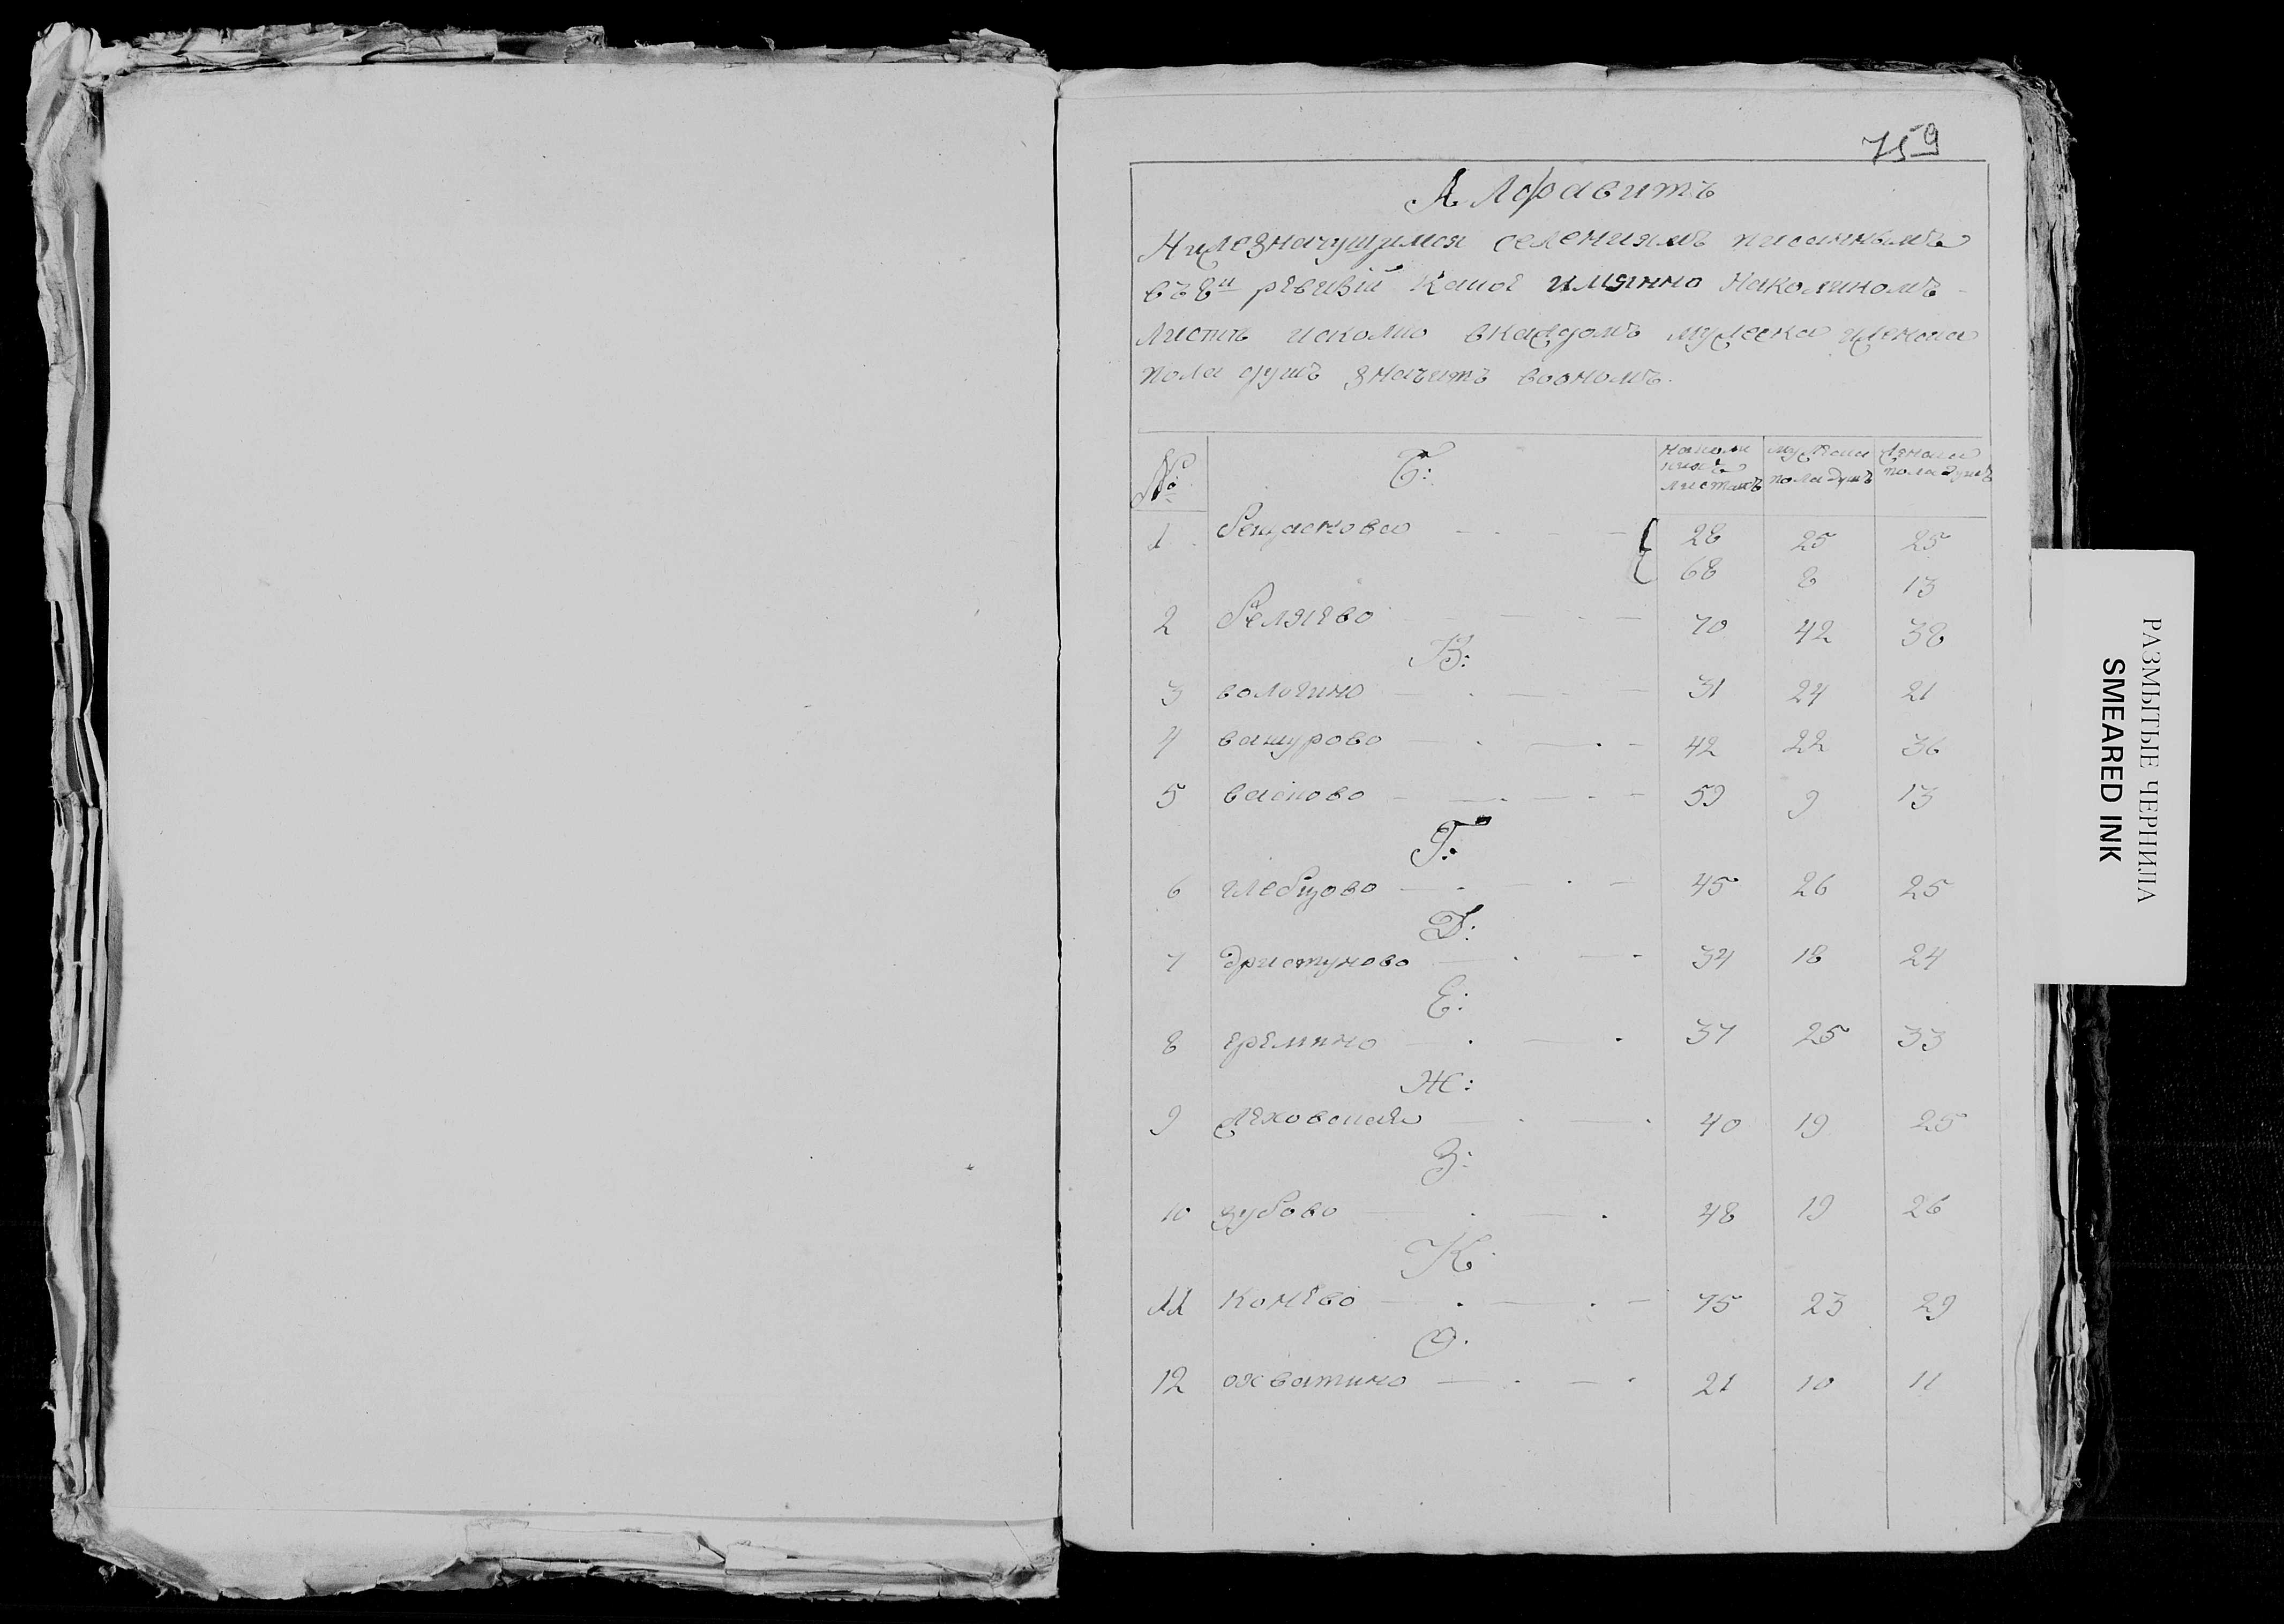 759
Алфавитъ
Нижезначущимся селениямъ писаннымъ
въ 8й ревизiи какое имянно накакомъ
листѣ исколко вкаждомъ мужеска иженска
пола душъ значитъ воономъ.
№ Б: накои нихъ листахъ мужеска пола душъ женска пола душъ
1 28 25 25
68 8 13
2 Беляево 70 42 38
В:
3 вологино 31 24 21
4 вашурово 42 22 36
5 васково 59 9 13
Г:
6 глебцово 45 26 25
Д:
7 дристуново 34 18 24
Е:
8 еремино 37 25 33
Ж:
9 жеховская 40 19 25
З:
10 зубово 48 19 26
К:
11 конево 75 23 29
О:
12 охватино 21 10 11
РАЗМЫТЫЕ ЧЕРНИЛА
SMEARED INK